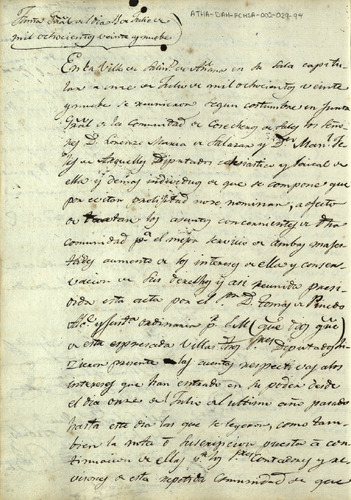 ATHA-DAH-FCHSA-002-029-94
Junta Gral del dia 11 de Julio de
mil ochocientos veinte y nueve
En la Villa de Salinas de Añana en su Sala capitu-
lar a once de Julio de mil ochocientos veinte
y nueve se reunieron segun costumbre en Junta
Gral de la Comunidad de Cosecheros de Sales los Seño-
res D. Lorenzo Maria de Salazar y Dn Manl
Diputados eclesiastico y laical de
ella y demas individuos de que se compone, que
por evitar prolixidad no se nominan, a efecto
de tratar los asuntos concernientes a dha
comunidad pa el mejor servicio de ambas mages-
tades aumento de los intereses de ella y conser-
vacion de sus derechos y asi reunida presi-
dida esta acta por el Sor D. Tomas de Pinedo
Alce y Justa ordinaria pr S.M. (que Dios gue)
de esta expresada villa dhos Sres Diputados hi-
cieron presente las cuentas respectivas a los
intereses que han entrado en su poder desde
el dia once de Julio del ultimo año pasado
hasta este dia las que se leyeron, como tam-
bien la nota o suscripcion puesta a con-
tinuacion de ellas pr los Sres Contadores y re-
visores de esta repetida Comunidad de que